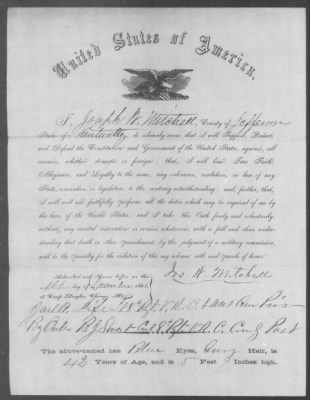 United States of America.
I, Joseph W. Mitchell, County of Jefferson
State of Kentucky do solemnly swear that I will Support, Protect,
and Defend the Constitution and Government of the United States, against, all
enemies, whether domestic or foreign; that, I will bear True Faith,
Allegiance, and Loyalty to the same, any ordinance, resolution, or law of any
State, convention, or legislature, to the contrary notwithstanding; and, further, that,
I will well and faithfully perform all the duties which may be required of me by
the laws of the United States, and I take this Oath freely and voluntarily,
without, any mental reservation or evasion whatever, with a full and clear under-
standing that death or other punishment, by the judgment of a military commission,
will be the penalty for the violation of this my solemn oath and parole of honor.
Subscribed and Sworn before me this
day of
at Camp Douglas, Chicago, Illinois
Jos W. Mitchell
By Order B. J. Sweet Col 8 Regt V. R. C. Comdg Post
The above-named has Blue Eyes, Grey Hair, is
42 Years of Age, and is 5 Feet Inches high.